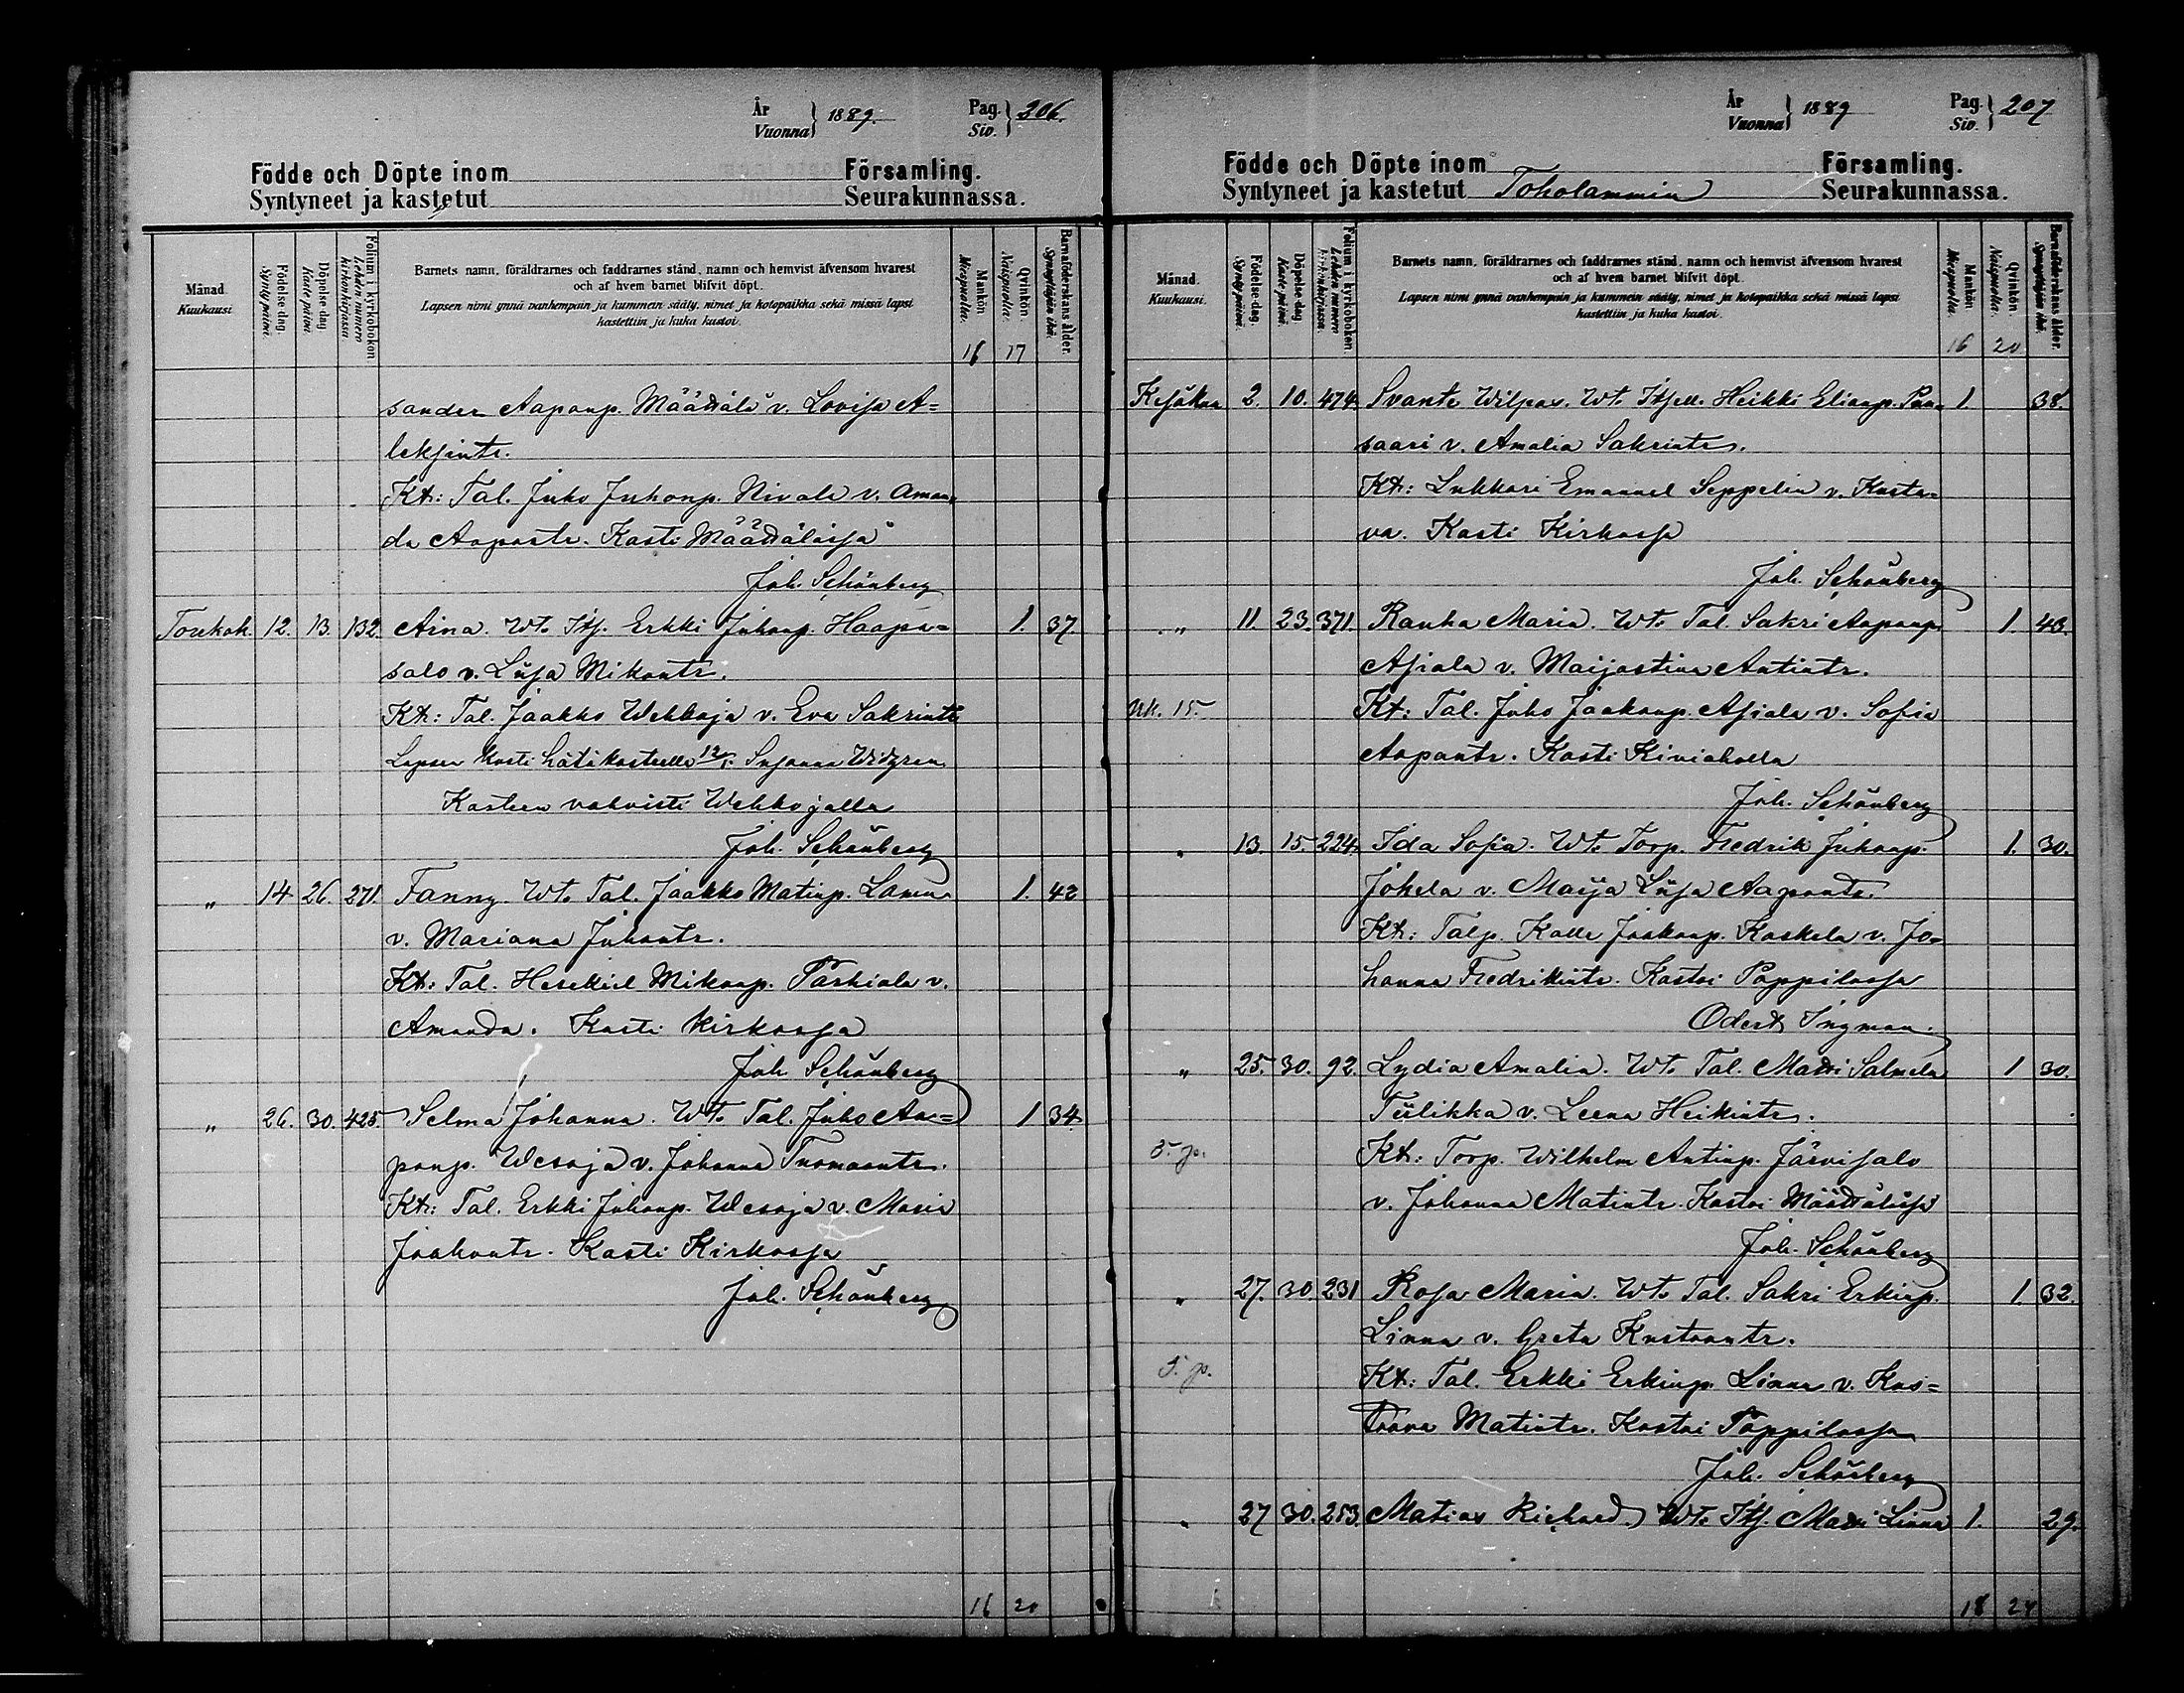 År
Vuonna } 1889.
Pag.
Siv. } 206.
Födde och Döpte inom Församling.
Syntyneet ja kastetut Seurakunnassa.
Månad.
Kuukausi.
Födelse-dag.
Syntypäivä.
Döpelse-dag
Kaste päivä.
Folium i kyrkoboken
Lehden numero
kirkonkirjassa
Barnets namn, föräldrarnes och faddrarnes stånd, namn och hemvist äfvensom hvarest
och af hvem barnet blifvit döpt.
Lapsen nimi ynnä vanhempain ja kummein sääty, nimet ja kotopaikka sekä missä lapsi
kastettiin ja kuka kastoi.
Mankön
Miespuolta.
Qvinkön.
Naispuolta.
Barnaföderskans ålder.
Synnyttäjän ikä.
16 17
sander Aapanp. Määttälä v. Lovisa A=
leksintr.
Kt: Tal. Juho Juhonp. Nivala v. Aman-
da Aapontr. Kasti Määttälässä
Joh. Schönberg
Toukok. 12. 13. 132. Aina. Wt. Itj. Erkki Juhonp. Haapa= 1. 37.
salo v. Liisa Mikontr.
Kt: Tal. Jaakko Wehkoja v. Eva Sakrintr
Lapsen kasti hätäkasteella 12/5 Susanna Widgren
Kasteen vahvisti Wehkojalla
Joh. Schönberg
„ 14 26. 271. Fanny. Wt. Tal. Jaakko Matinp. Lama 1. 42
v. Mariana Juhontr.
Kt: Tal. Hesekiel Mikonp. Parkiala v.
Amanda. Kasti kirkossa
Joh Schönberg
„ 26. 30. 425. Selma Johanna. Wt. Tal. Juho Aa= 1 34.
ponp. Wesoja v. Johanna Tuomaantr.
Kt: Tal. Erkki Juhonp. Wesoja v. Maria
Jaakontr. Kasti Kirkossa
Joh. Schönberg
16 20
År
Vuonna } 1889
Pag.
Siv. } 207
Födde och Döpte inom Församling.
Syntyneet ja kastetut Toholammin Seurakunnassa.
Månad.
Kuukausi.
Födelse-dag.
Syntypäivä.
Döpelse-dag
Kaste päivä.
Folium i kyrkoboken
Lehden numero
kirkonkirjassa.
Barnets namn, föräldrarnes och faddrarnes stånd, namn och hemvist äfvensom hvarest
och af hvem barnet blifvit döpt.
Lapsen nimi ynnä vanhempain ja kummein sääty, nimet ja kotopaikka sekä missä lapsi
kastettiin ja kuka kastoi.
Mankön.
Miespuolta.
Qvinkön.
Naispuolta.
Barnaföderskans ålder.
Synnyttäjän ikä.
16 20
Kesäkuu 2. 10. 474. Svante Wilpas. Wt. Itsell. Heikki Eliaup. Paa- 1. 38.
saari v. Amalia Sakrintr.
Kt: Lukkari Emanuel Seppelin v. Kusta-
va. Kasti Kirkossa
Joh. Schönberg
„ 11. 23. 371. Rauha Maria. Wt. Tal. Sakri Aapanp. 1. 43.
Asiala v. Maijastiina Antintr.
Uk. 15. Kt: Tal. Juho Jaakonp. Asiala v. Sofia
Aapontr. Kasti Kiviaholla
Joh. Schönberg
„ 13. 15. 224. Ida Sofia. Wt. Torp. Fredrik Juhonp. 1. 30.
Jokela v. Maija Liisa Aapontr.
Kt: Talp. Kalle Jaakonp. Koskela v. Jo-
hanna Fredrikintr. Kastoi Pappilassa
Odert Ingman.
„ 25. 30. 92. Lydia Amalia. Wt. Tal. Matti Salmela 1 30.
Tiilikka v. Leena Heikintr.
5. p. Kt: Torp. Wilhelm Antinp. Järvisalo
v. Johanna Matintr. Kastoi Määttälässä
Joh. Schönberg
„ 27. 30. 231 Rosa Maria. Wt. Tal. Sakri Erkinp. 1. 32.
Linna v. Greta Kustaantr.
5. p. Kt: Tal. Erkki Erkinp. Linna v. Kus=
taava Matintr. Kastoi Pappilassa
Joh. Schönberg
„ 27 30. 253. Matias Richard. Wt. Itj. Matti Linna 1. 29.
18 24